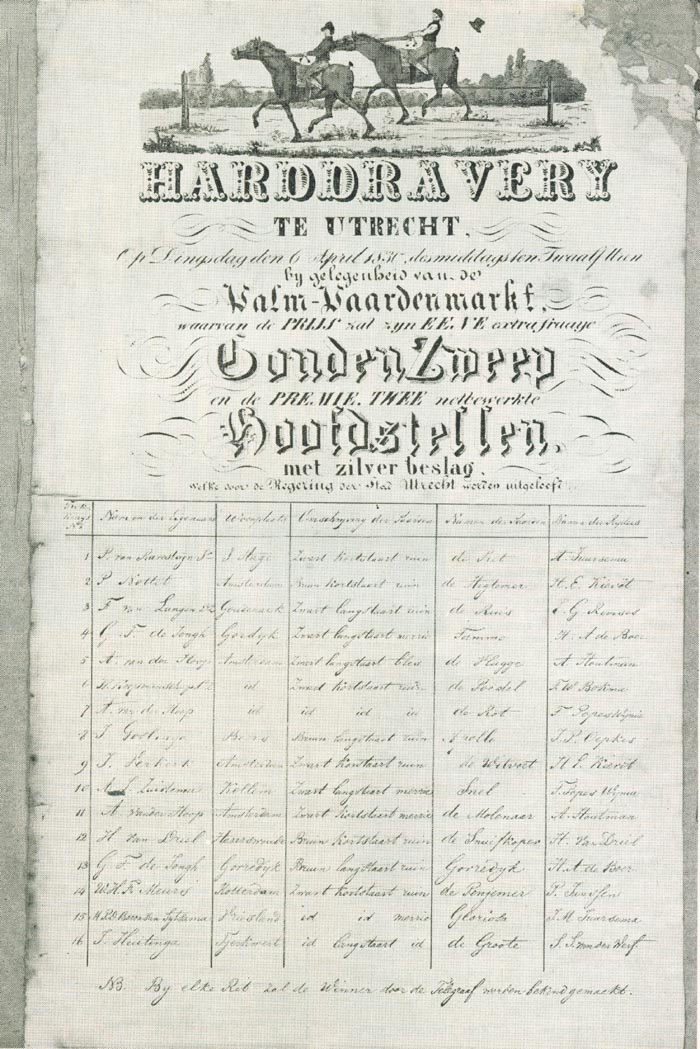 HARDDRAVERY
TE UTRECHT,
Op Dingsdag den 6 April 1830, desmiddags ten Twaalf Uren
by gelegenheid van de
Palm-Paardenmarkt,
waarvan de PRIJS zal zyn EENE extra fraaye
Gouden Zweep
en de PREMIE, TWEE netbewerkte
Hoofdstellen,
met zilver beslag,
welke door de Regering der Stad Utrecht worden uitgeloofd
No Namen der Eigenaars Woonplaats Omschryving der Paarden Namen der Paarden Namen der Ryders
1 P. van S Hage Zwart kortstaart ruin de A. Tuursema
2 P. Amsterdam Bruin kortstaart ruin de H. E. Kievit
3 F. van Langen Zwart langstaart ruin de
4 G. F. de Jongh Gordyk Zwart langstaart merrie H. A de Boer
5 A. van der Hoop Amsterdam Zwart langstaart bles de Vlugge A. Houtman
6 id Zwart kortstaart ruin de Poedel F. W. Bokma
7 A. v. d. Hoop id id id id de Rot F. Popes Wyma
8 Bruin langstaart ruin Apollo J. P. Oepkes
9 J. Amsterdam Zwart kortstaart ruin de H. E. Kievit
10 L. Zuidema Kollum Zwart langstaart merrie Snel F. Popes Wyma
11 A. van der Hoop Amsterdam Zwart kortstaart merrie de Molenaar A. Houtman
12 H. van Driel Haserswoude Bruin kortstaart ruin de Snuifkoper H. van Driel
13 G. F. de Jongh Gorredyk Bruin langstaart ruin Gorredyk H. A. de Boer
14 W. H. F. Meurs Rotterdam Zwart kortstaart ruin de P.
15 Vriesland id id merrie J. M. Tuursema
16 T. Huitinga Tjerkwert id langstaart id de Groote S. S. van der Werf
NB. By elke Rit zal de Winner door de Telegraaf worden bekend gemaakt.